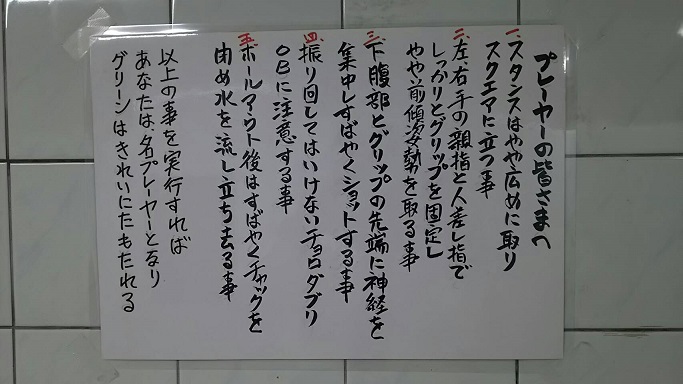 プレーヤーの皆さまへ
一、スタンスはやや広めに取り
スクエマに立つ事
二、左、右手の親指と人差し指で
しっかりとグリップを固定し
やや前傾姿勢を取る事
三、下腹部とグリップの先端に神経を
集中しすばやくショットする事
四、振り回してはいけないチョロダブリ
OBに注意する事
五、ホールアウト後はすばやくチャックを
閉め水を流し立ち去る事
以上の事を実行すれば
あなたは、名プレーヤーとなり
グリーンはきれいにたもたれる